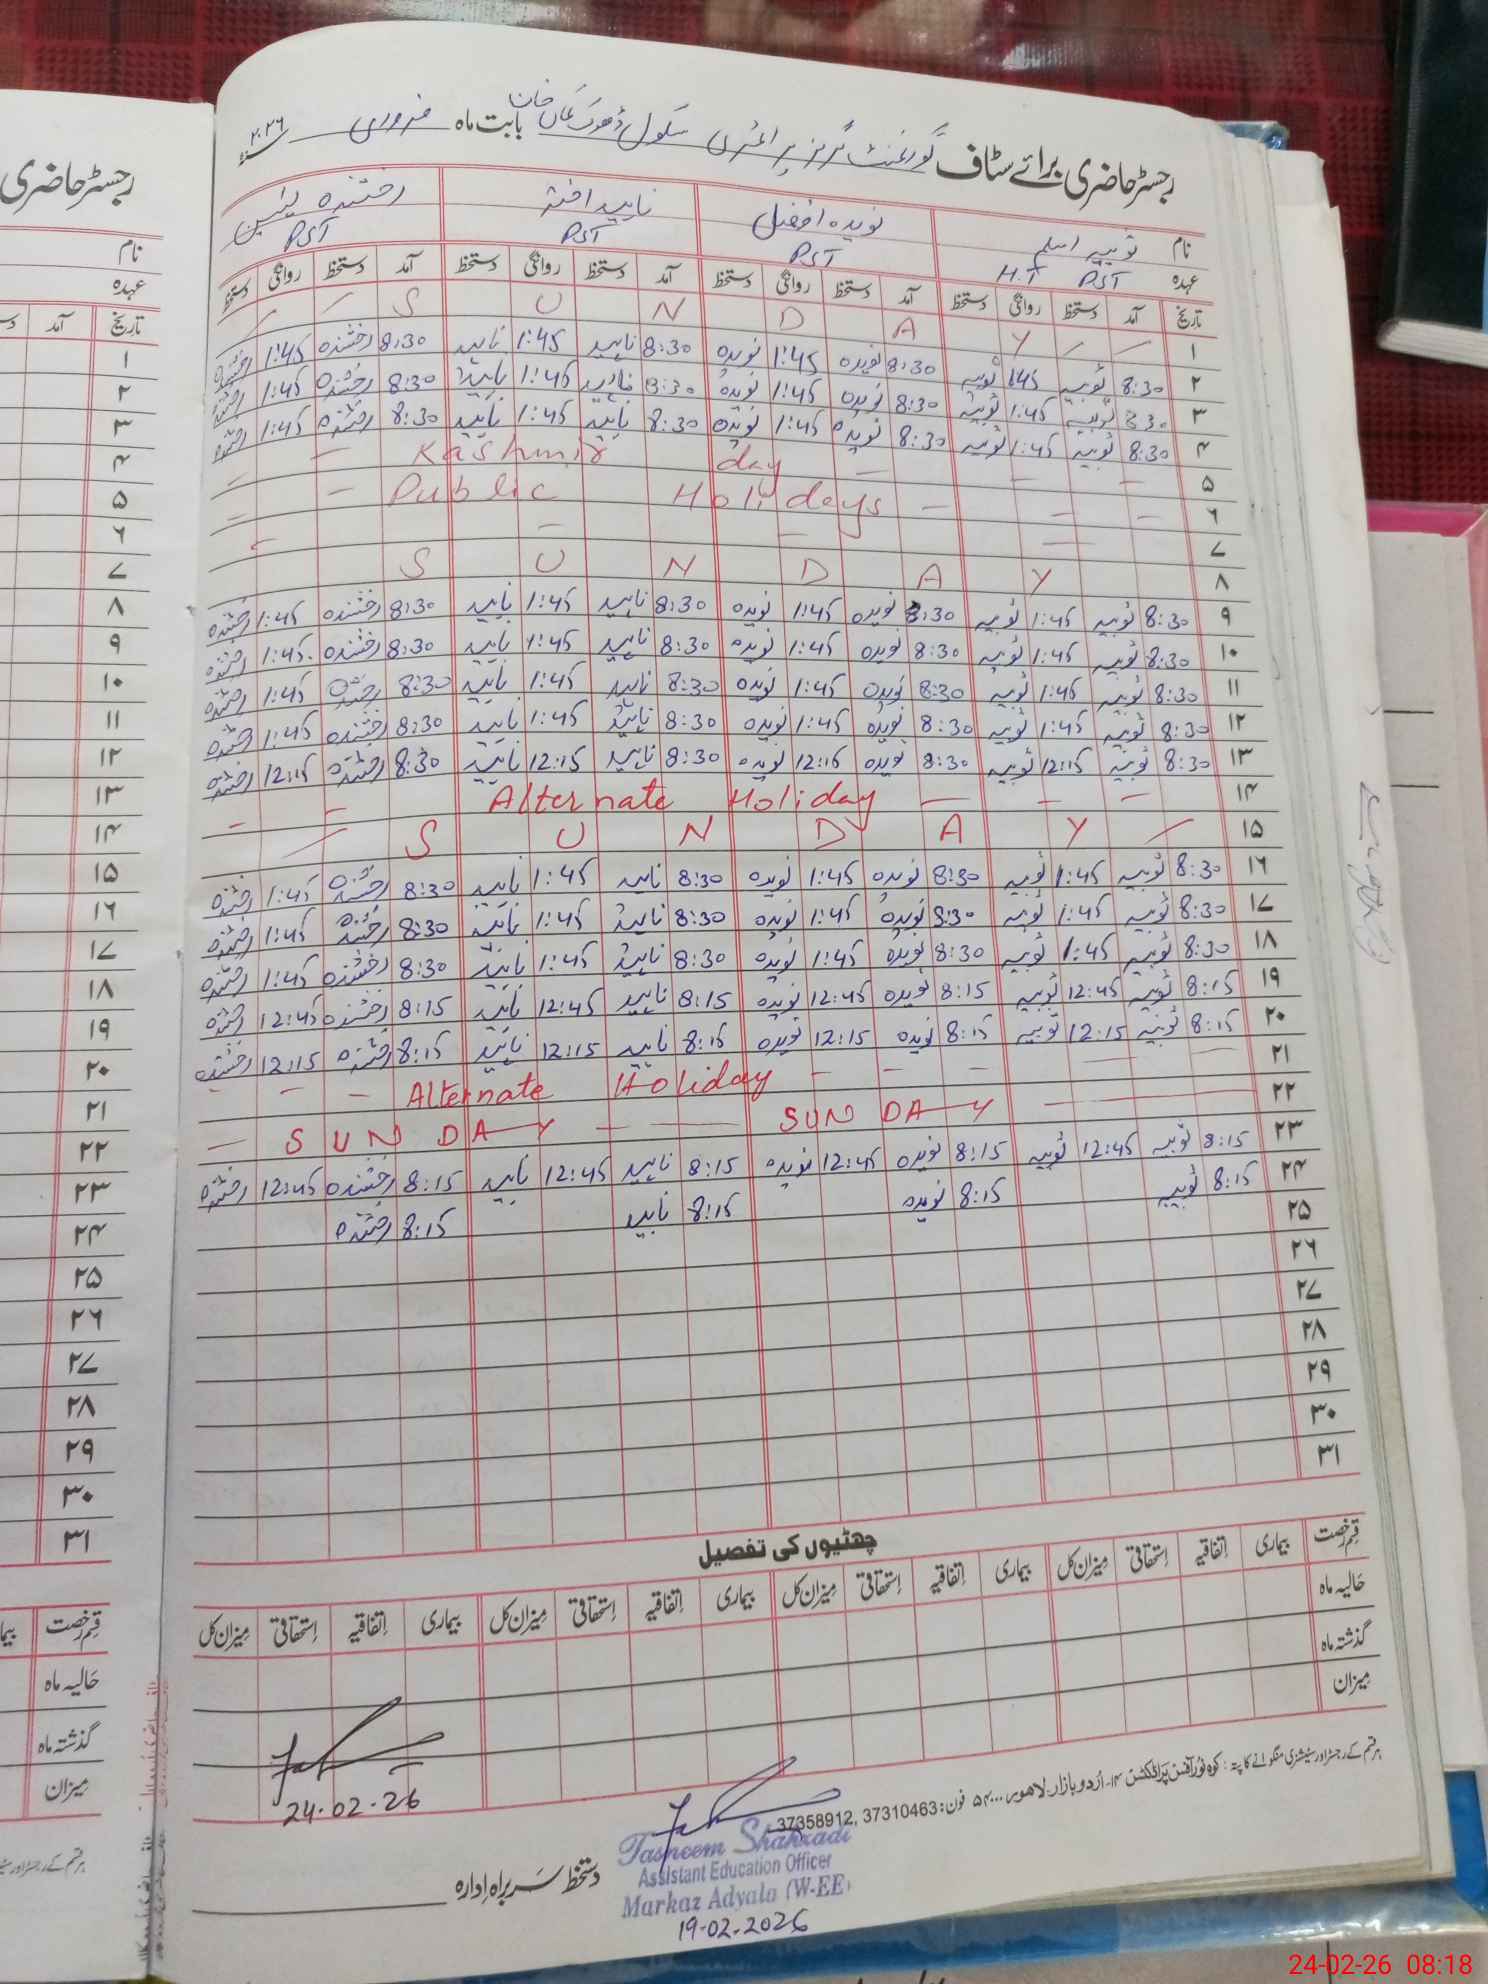 رجسٹر حاضری برائے سٹاف گورنمنٹ گرلز پرائمری سکول ڈھوک خان بابت ماہ فروری ۲۰۲۶
نام ثوبیہ اسلم نویدہ افضل ناہید اختر رخشندہ یاسمین
عہدہ PST H.T PST PST PST
تاریخ آمد دستخط روانگی دستخط آمد دستخط روانگی دستخط آمد دستخط روانگی دستخط آمد دستخط روانگی دستخط
۱ S U N D A Y
۲ 8:30 ثوبیہ 1:45 ثوبیہ 8:30 نویدہ 1:45 نویدہ 8:30 ناہید 1:45 ناہید 8:30 رخشندہ 1:45 رخشندہ
۳ 8:30 ثوبیہ 1:45 ثوبیہ 8:30 نویدہ 1:45 نویدہ 8:30 ناہید 1:45 ناہید 8:30 رخشندہ 1:45 رخشندہ
۴ 8:30 ثوبیہ 1:45 ثوبیہ 8:30 نویدہ 1:45 نویدہ 8:30 ناہید 1:45 ناہید 8:30 رخشندہ 1:45 رخشندہ
۵ Kashmir day
۶ Public Holidays
۷
۸ S U N D A Y
۹ 8:30 ثوبیہ 1:45 ثوبیہ 8:30 نویدہ 1:45 نویدہ 8:30 ناہید 1:45 ناہید 8:30 رخشندہ 1:45 رخشندہ
۱۰ 8:30 ثوبیہ 1:45 ثوبیہ 8:30 نویدہ 1:45 نویدہ 8:30 ناہید 1:45 ناہید 8:30 رخشندہ 1:45 رخشندہ
۱۱ 8:30 ثوبیہ 1:45 ثوبیہ 8:30 نویدہ 1:45 نویدہ 8:30 ناہید 1:45 ناہید 8:30 رخشندہ 1:45 رخشندہ
۱۲ 8:30 ثوبیہ 1:45 ثوبیہ 8:30 نویدہ 1:45 نویدہ 8:30 ناہید 1:45 ناہید 8:30 رخشندہ 1:45 رخشندہ
۱۳ 8:30 ثوبیہ 12:15 ثوبیہ 8:30 نویدہ 12:15 نویدہ 8:30 ناہید 12:15 ناہید 8:30 رخشندہ 12:15 رخشندہ
۱۴ Alternate Holiday
۱۵ S U N D A Y
۱۶ 8:30 ثوبیہ 1:45 ثوبیہ 8:30 نویدہ 1:45 نویدہ 8:30 ناہید 1:45 ناہید 8:30 رخشندہ 1:45 رخشندہ
۱۷ 8:30 ثوبیہ 1:45 ثوبیہ 8:30 نویدہ 1:45 نویدہ 8:30 ناہید 1:45 ناہید 8:30 رخشندہ 1:45 رخشندہ
۱۸ 8:30 ثوبیہ 1:45 ثوبیہ 8:30 نویدہ 1:45 نویدہ 8:30 ناہید 1:45 ناہید 8:30 رخشندہ 1:45 رخشندہ
۱۹ 8:15 ثوبیہ 12:45 ثوبیہ 8:15 نویدہ 12:45 نویدہ 8:15 ناہید 12:45 ناہید 8:15 رخشندہ 12:45 رخشندہ
۲۰ 8:15 ثوبیہ 12:15 ثوبیہ 8:15 نویدہ 12:15 نویدہ 8:15 ناہید 12:15 ناہید 8:15 رخشندہ 12:15 رخشندہ
۲۱ Alternate Holiday
۲۲ SUNDAY SUNDAY
۲۳ 8:15 ثوبیہ 12:45 ثوبیہ 8:15 نویدہ 12:45 نویدہ 8:15 ناہید 12:45 ناہید 8:15 رخشندہ 12:45 رخشندہ
۲۴ 8:15 ثوبیہ 8:15 نویدہ 8:15 ناہید 8:15 رخشندہ
۲۵
۲۶
۲۷
۲۸
۲۹
۳۰
۳۱
چھٹیوں کی تفصیل
قسم رخصت بیماری اتفاقیہ استحقاقی میزان کل بیماری اتفاقیہ استحقاقی میزان کل بیماری اتفاقیہ استحقاقی میزان کل بیماری اتفاقیہ استحقاقی میزان کل
حالیہ ماہ
گذشتہ ماہ
میزان
24.02.26
ہر قسم کے رجسٹر اور سٹیشنری منگوانے کا پتہ: کوہ نور آفسٹ پراڈکشن ۱۴- اردو بازار- لاہور ۵۴۰۰۰ فون: 37310463 ,37358912
دستخط سربراہ ادارہ
Tasneem Shahzadi
Assistant Education Officer
Markaz Adyala (W-EE)
19-02-2026
رجسٹر حاضری
نام
عہدہ
تاریخ آمد
۱
۲
۳
۴
۵
۶
۷
۸
۹
۱۰
۱۱
۱۲
۱۳
۱۴
۱۵
۱۶
۱۷
۱۸
۱۹
۲۰
۲۱
۲۲
۲۳
۲۴
۲۵
۲۶
۲۷
۲۸
۲۹
۳۰
۳۱
قسم رخصت
حالیہ ماہ
گذشتہ ماہ
میزان
24-02-26 08:18